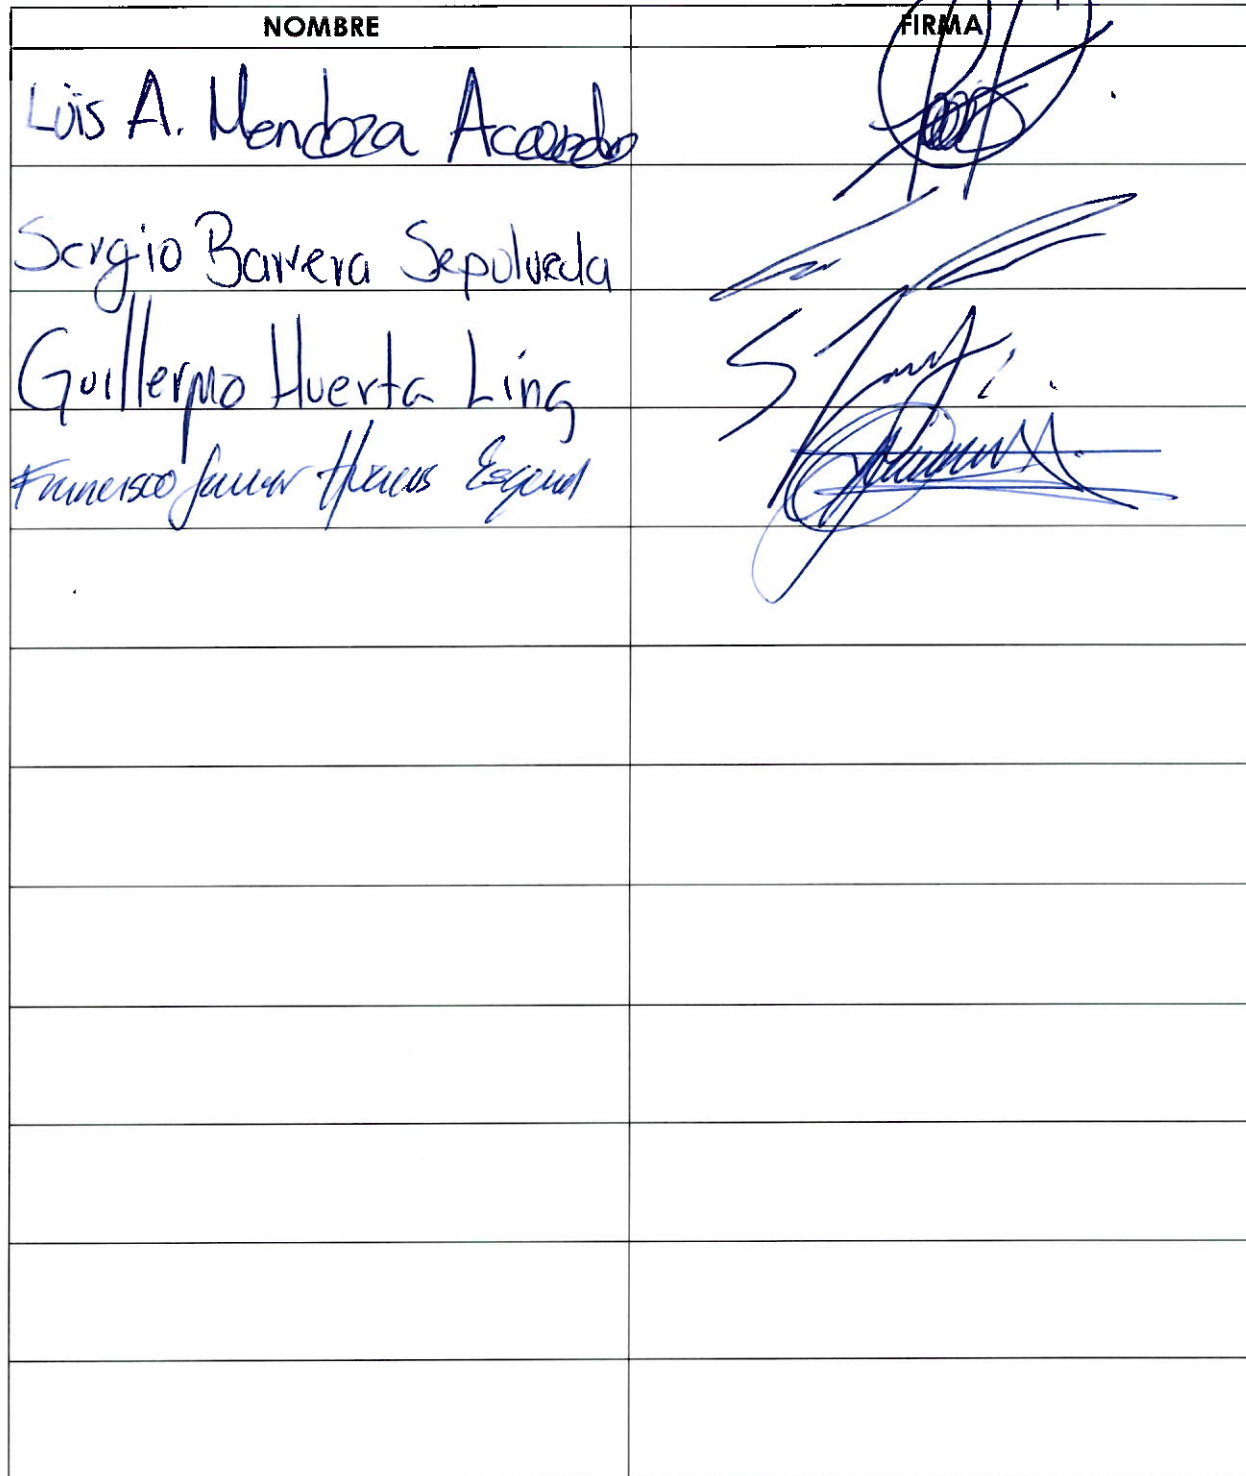 NOMBRE FIRMA
Luis A. Mendoza Acevedo
Sergio Barrera Sepulveda
Guillermo Huerta Ling
Francisco Javier